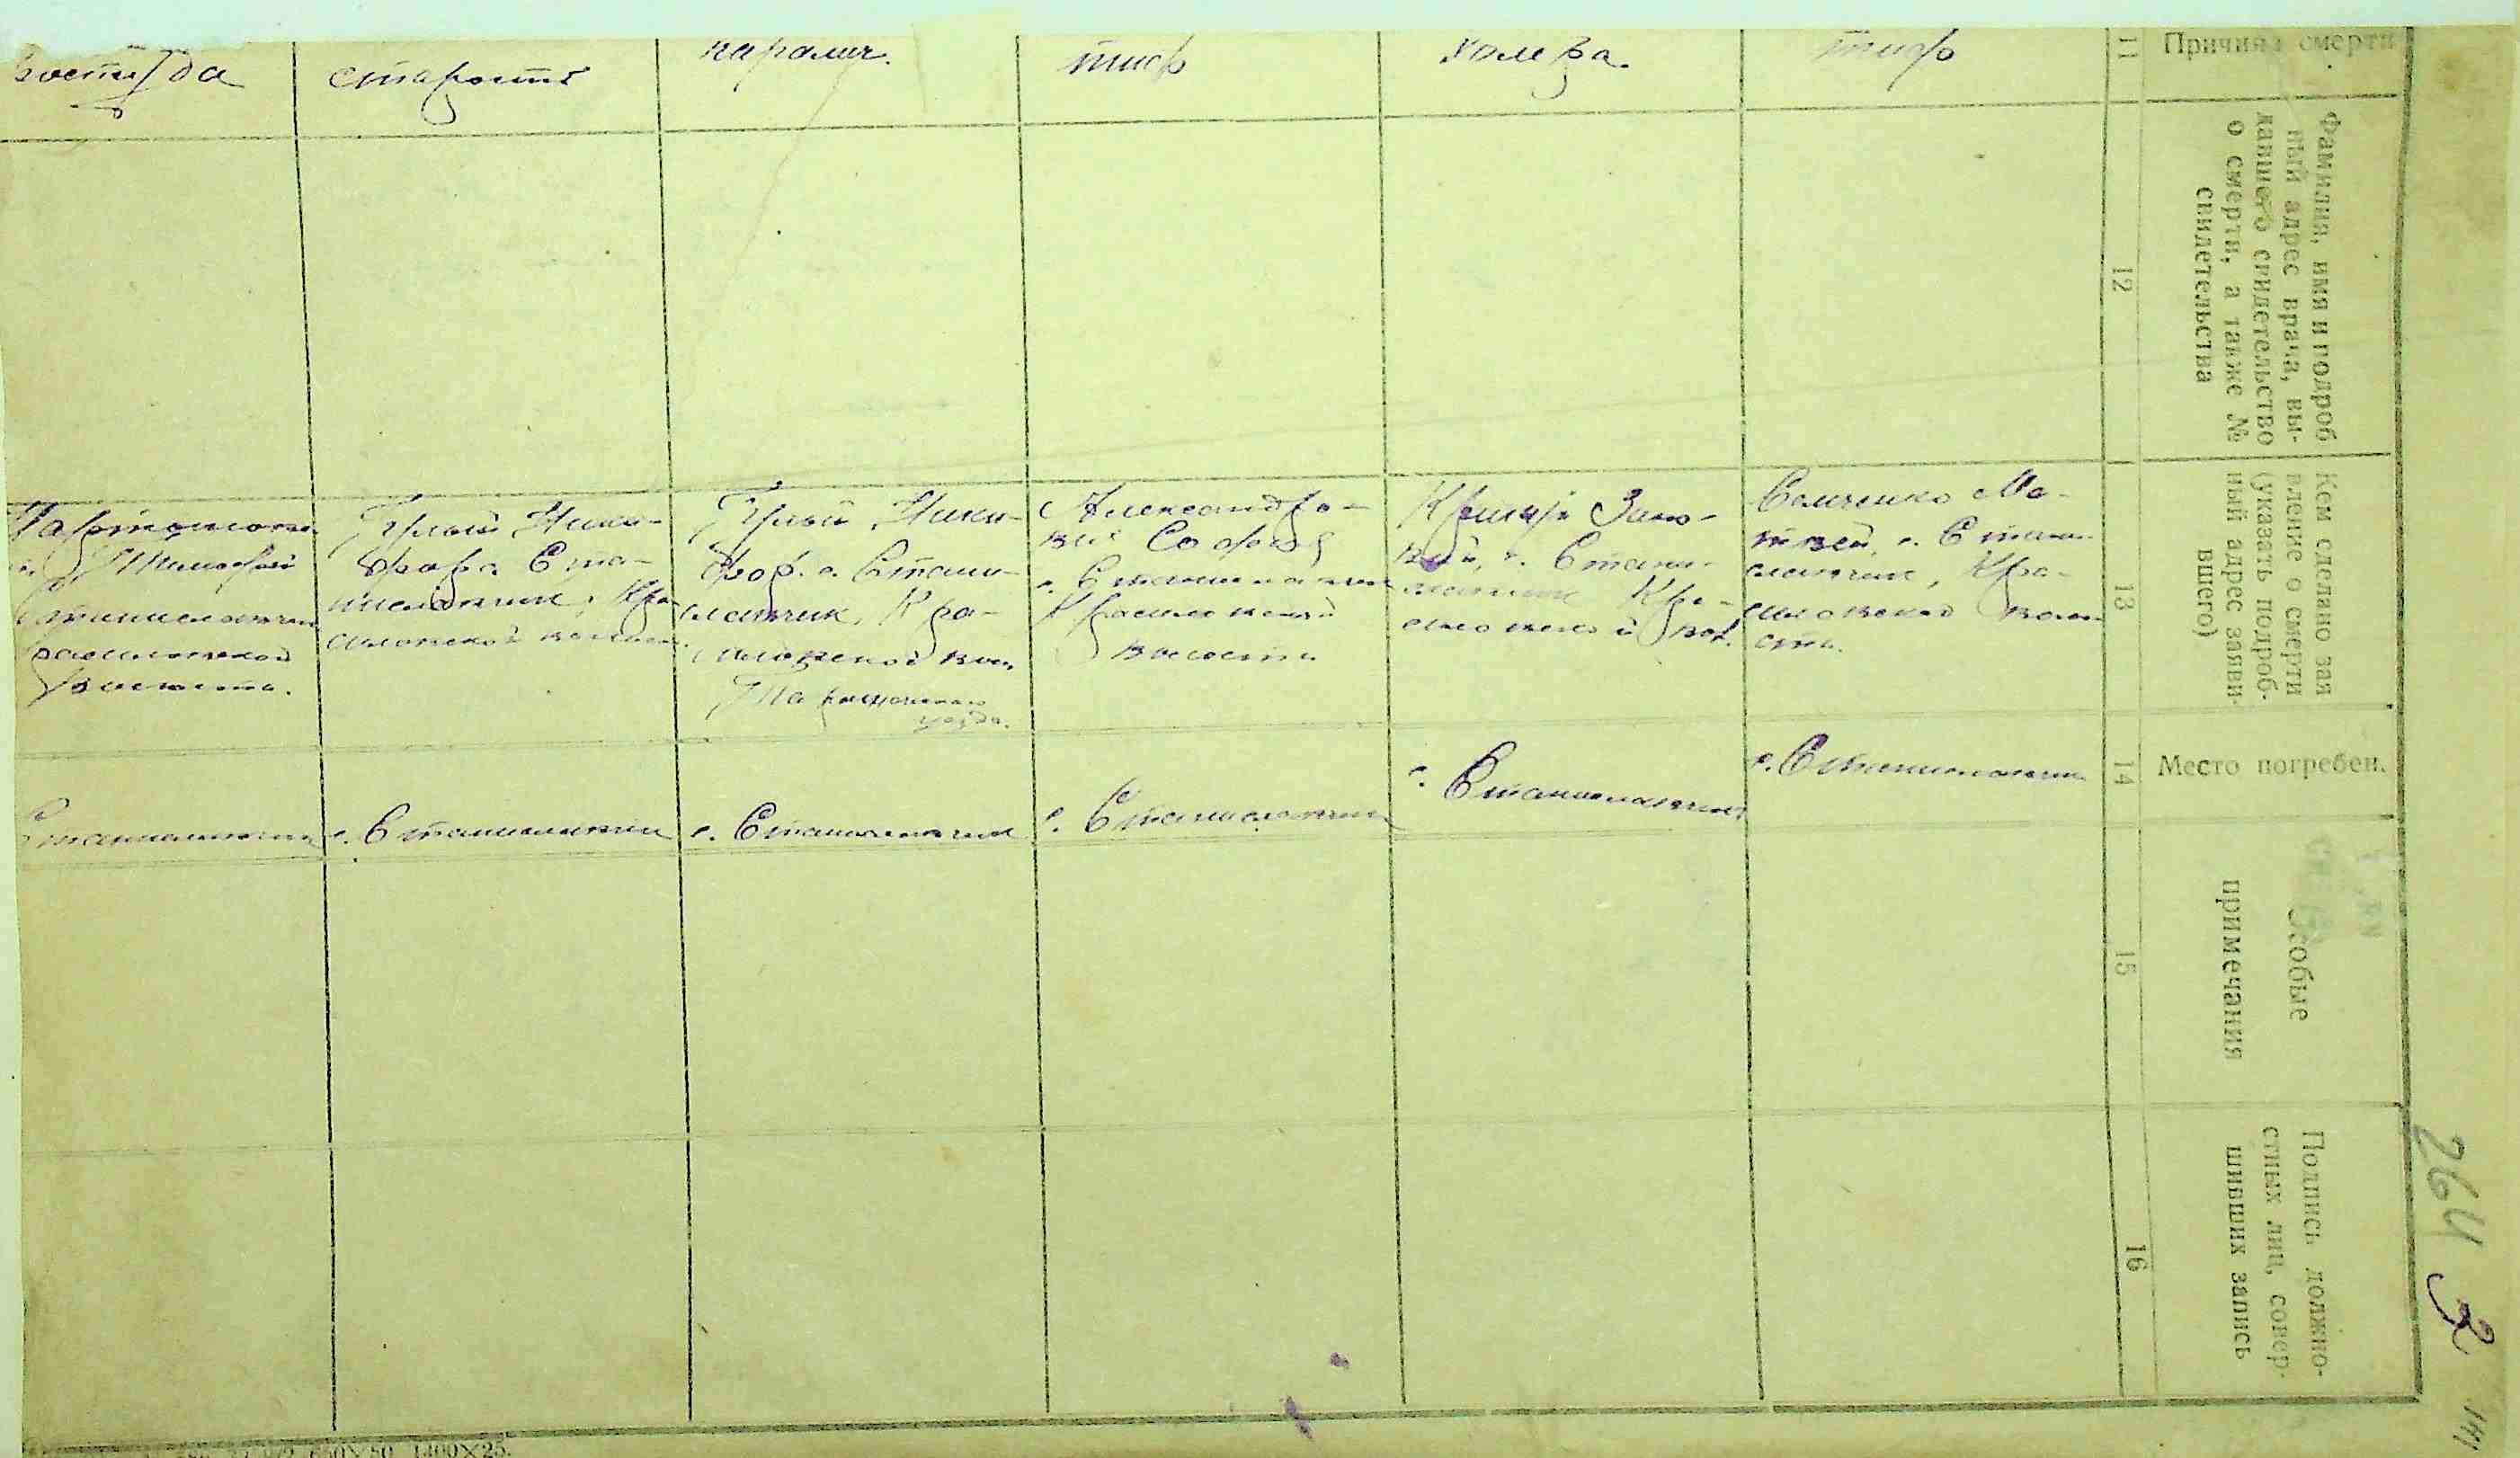 11 Причина смерти
12
Фамилия, имя и подроб
ный адрес врача, вы-
давшего свидетельство
о смерти, а также №
свидетельства
13
Кем сделано зая
вление о смерти
(указать подроб-
ный адрес заяви-
вшего)
14 Место погребен.
15
Особые
примечания
16
Подпись должно-
стных лиц, совер-
шивших запись
простуда
старость
паралич.
тиф
холера.
тиф
Тимофей
Станиславчик
Красиловской
волости.
Ники-
фор с. Ста-
ниславчик, Кра-
силовской волости.
Ники-
фор. с. Стани-
славчик, Кра-
силовской вол.
Таращанского
уезда.
Александро-
вич Софья
с. Станиславчик
Красиловской
волости
Зино-
вий, с. Стани-
славчик Кра-
силовской вол.
Самченко Ма-
твей, с. Стани-
славчик, Кра-
силовской воло-
сти.
Станиславчик
с. Станиславчик
с. Станиславчик
с. Станиславчик
с. Станиславчик
с. Станиславчик
264